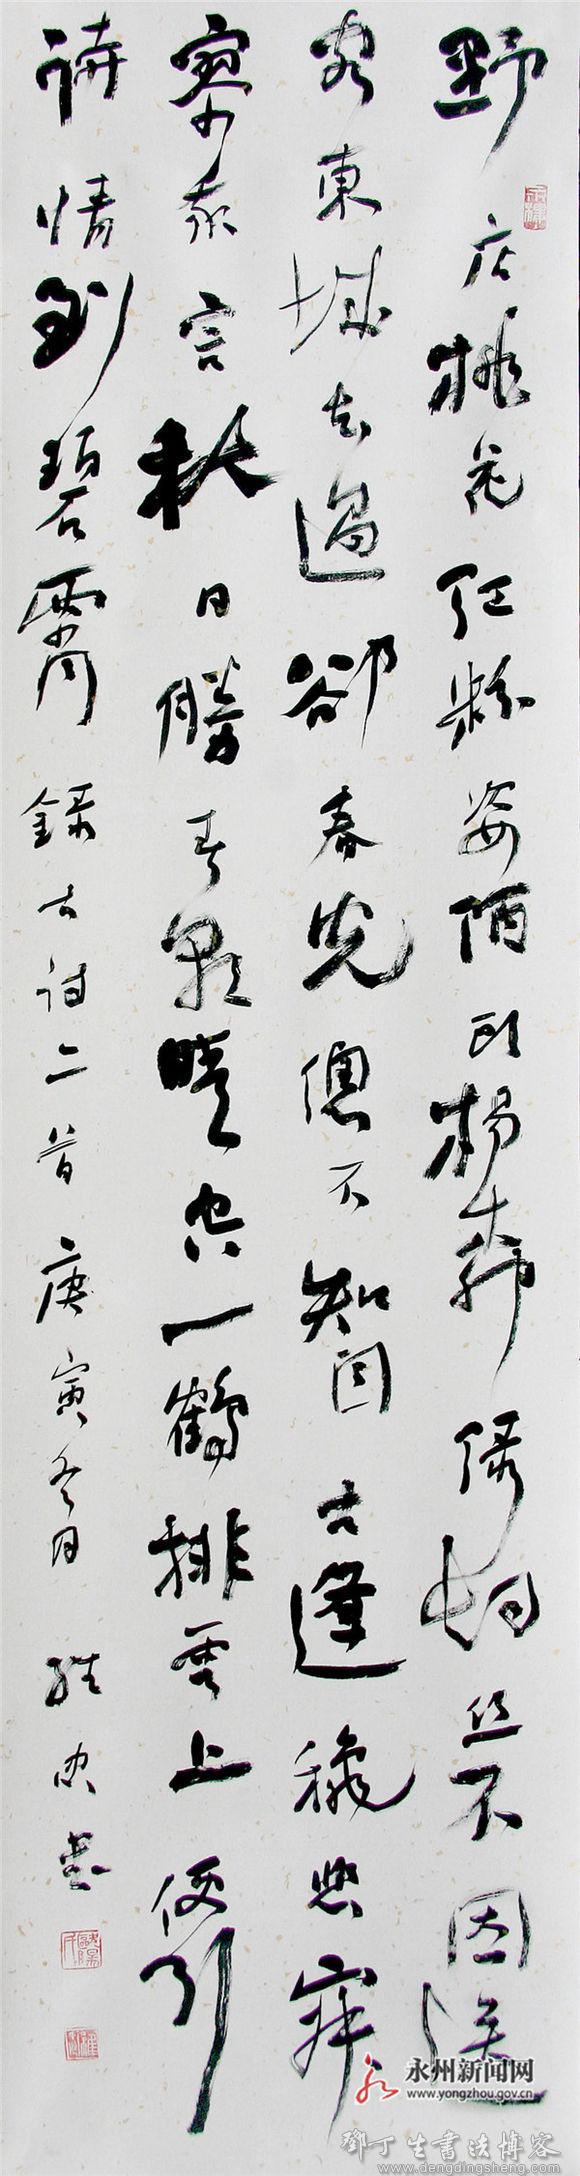 野店桃花紅粉姿陌頭楊柳綠煙絲不因送
客東城去過卻春光總不知自古逢秋悲寂
寥我言秋日勝春朝晴空一鶴排雲上便引
詩情到碧霄 錄古詩二首 庚寅冬日 書
永州新闻网
www.yongzhou.gov.cn
鄧丁生書法博客
www.dengdingsheng.com